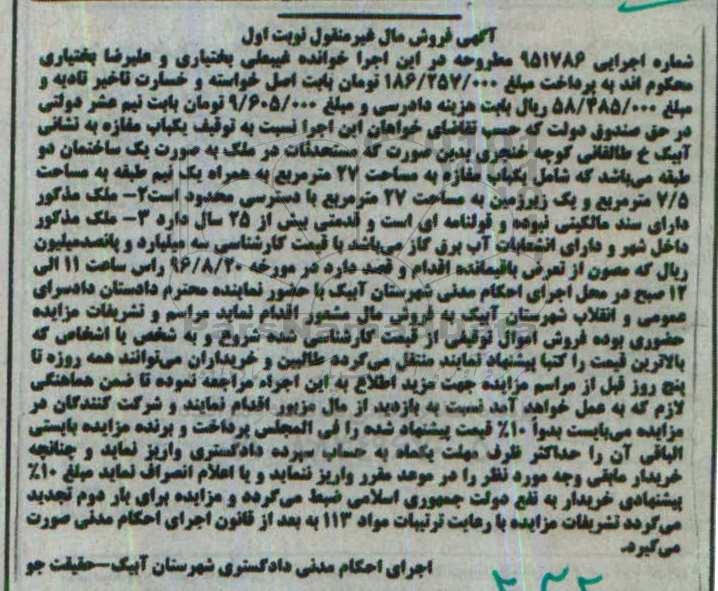 آگهی فروش مال غیرمنقول نوبت اول
شماره اجرایی ۹۵۱۷۸۶ مطروحه در این اجرا خوانده غیبعلی بختیاری و علیرضا بختیاری
محکوم اند به پرداخت مبلغ ۱۸۶/۲۵۷/۰۰۰ تومان بابت اصل خواسته و خسارت تاخیر تادیه و
مبلغ ۵۸/۴۸۵/۰۰۰ ریال بابت هزینه دادرسی و مبلغ ۹/۶۰۵/۰۰۰ تومان بابت نیم عشر دولتی
در حق صندوق دولت که حسب تقاضای خواهان این اجرا نسبت به توقیف یکباب مغازه به نشانی
آبیک خ طالقانی کوچه سنجری بدین صورت که مستحدثات در ملک به صورت یک ساختمان دو
طبقه می‌باشد که شامل یکباب مغازه به مساحت ۲۷ مترمربع به همراه یک نیم طبقه به مساحت
۷/۵ مترمربع و یک زیرزمین به مساحت ۲۷ مترمربع با دسترسی محدود است۲- ملک مذکور
دارای سند مالکیتی نبوده و قولنامه ای است و قدمتی بیش از ۲۵ سال دارد ۳- ملک مذکور
داخل شهر و دارای انشعابات آب برق گاز می‌باشد با قیمت کارشناسی سه میلیارد و پانصدمیلیون
ریال که مصون از تعرض باقیمانده اقدام و قصد دارد در مورخه ۹۶/۸/۲۰ راس ساعت ۱۱ الی
۱۲ صبح در محل اجرای احکام مدنی شهرستان آبیک با حضور نماینده محترم دادستان دادسرای
عمومی و انقلاب شهرستان آبیک به فروش مال مشعور اقدام نماید مراسم و تشریفات مزایده
حضوری بوده فروش اموال توقیفی از قیمت کارشناسی شده شروع و به شخص یا اشخاص که
بالاترین قیمت را کتبا پیشنهاد نمایند منتقل می‌گردد طالبین و خریداران می‌توانند همه روزه تا
پنج روز قبل از مراسم مزایده جهت مزید اطلاع به این اجراء مراجعه نموده تا ضمن هماهنگی
لازم که به عمل خواهد آمد نسبت به بازدید از مال مزبور اقدام نمایند و شرکت کنندگان در
مزایده می‌بایست بدواً ۱۰٪ قیمت پیشنهاد شده را فی المجلس پرداخت و برنده مزایده بایستی
الباقی آن را حداکثر ظرف مهلت یکماه به حساب سپرده دادگستری واریز نماید و چنانچه
خریدار مابقی وجه مورد نظر را در موعد مقرر واریز ننماید و یا اعلام انصراف نماید مبلغ ۱۰٪
پیشنهادی خریدار به نفع دولت جمهوری اسلامی ضبط می‌گردد و مزایده برای بار دوم تجدید
می‌گردد تشریفات مزایده با رعایت ترتیبات مواد ۱۱۳ به بعد از قانون اجرای احکام مدنی صورت
می‌گیرد.
اجرای احکام مدنی دادگستری شهرستان آبیک-حقیقت جو